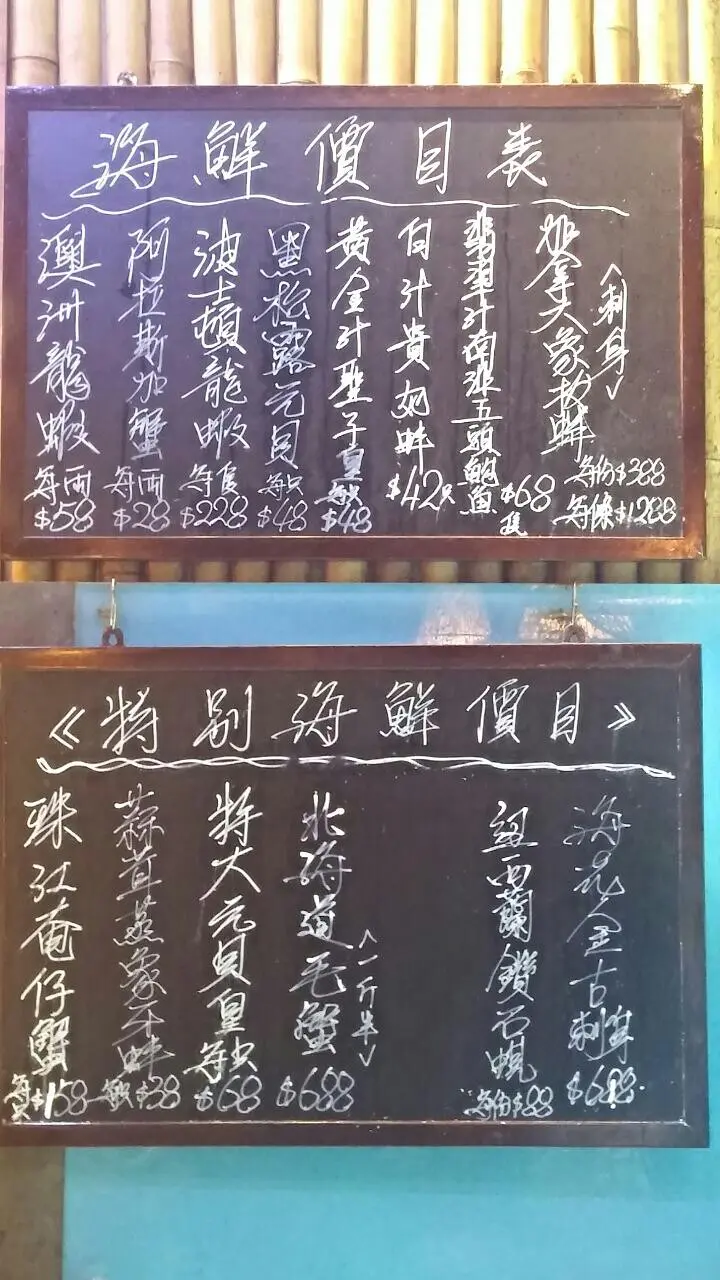 海鮮價目表
澳洲龍蝦 每両 $58
阿拉斯加蟹 每両 $28
波士頓龍蝦 每隻 $228
黑松露元貝 每只 $48
黃金汁聖子皇 每只 $48
白汁貴妃蚌 $42只
翡翠汁南非五頭鮑魚 $68
加拿大象拔蚌
<刺身>
每份$388
每條$1288
《特別海鮮價目》
珠江奄仔蟹 每只$158
蒜茸蒸象牙蚌 每只$38
特大元貝皇 每只 $68
北海道毛蟹 $688
<一斤半>
紐西蘭鑽石蜆 每份$88
海花金古刺身 $688